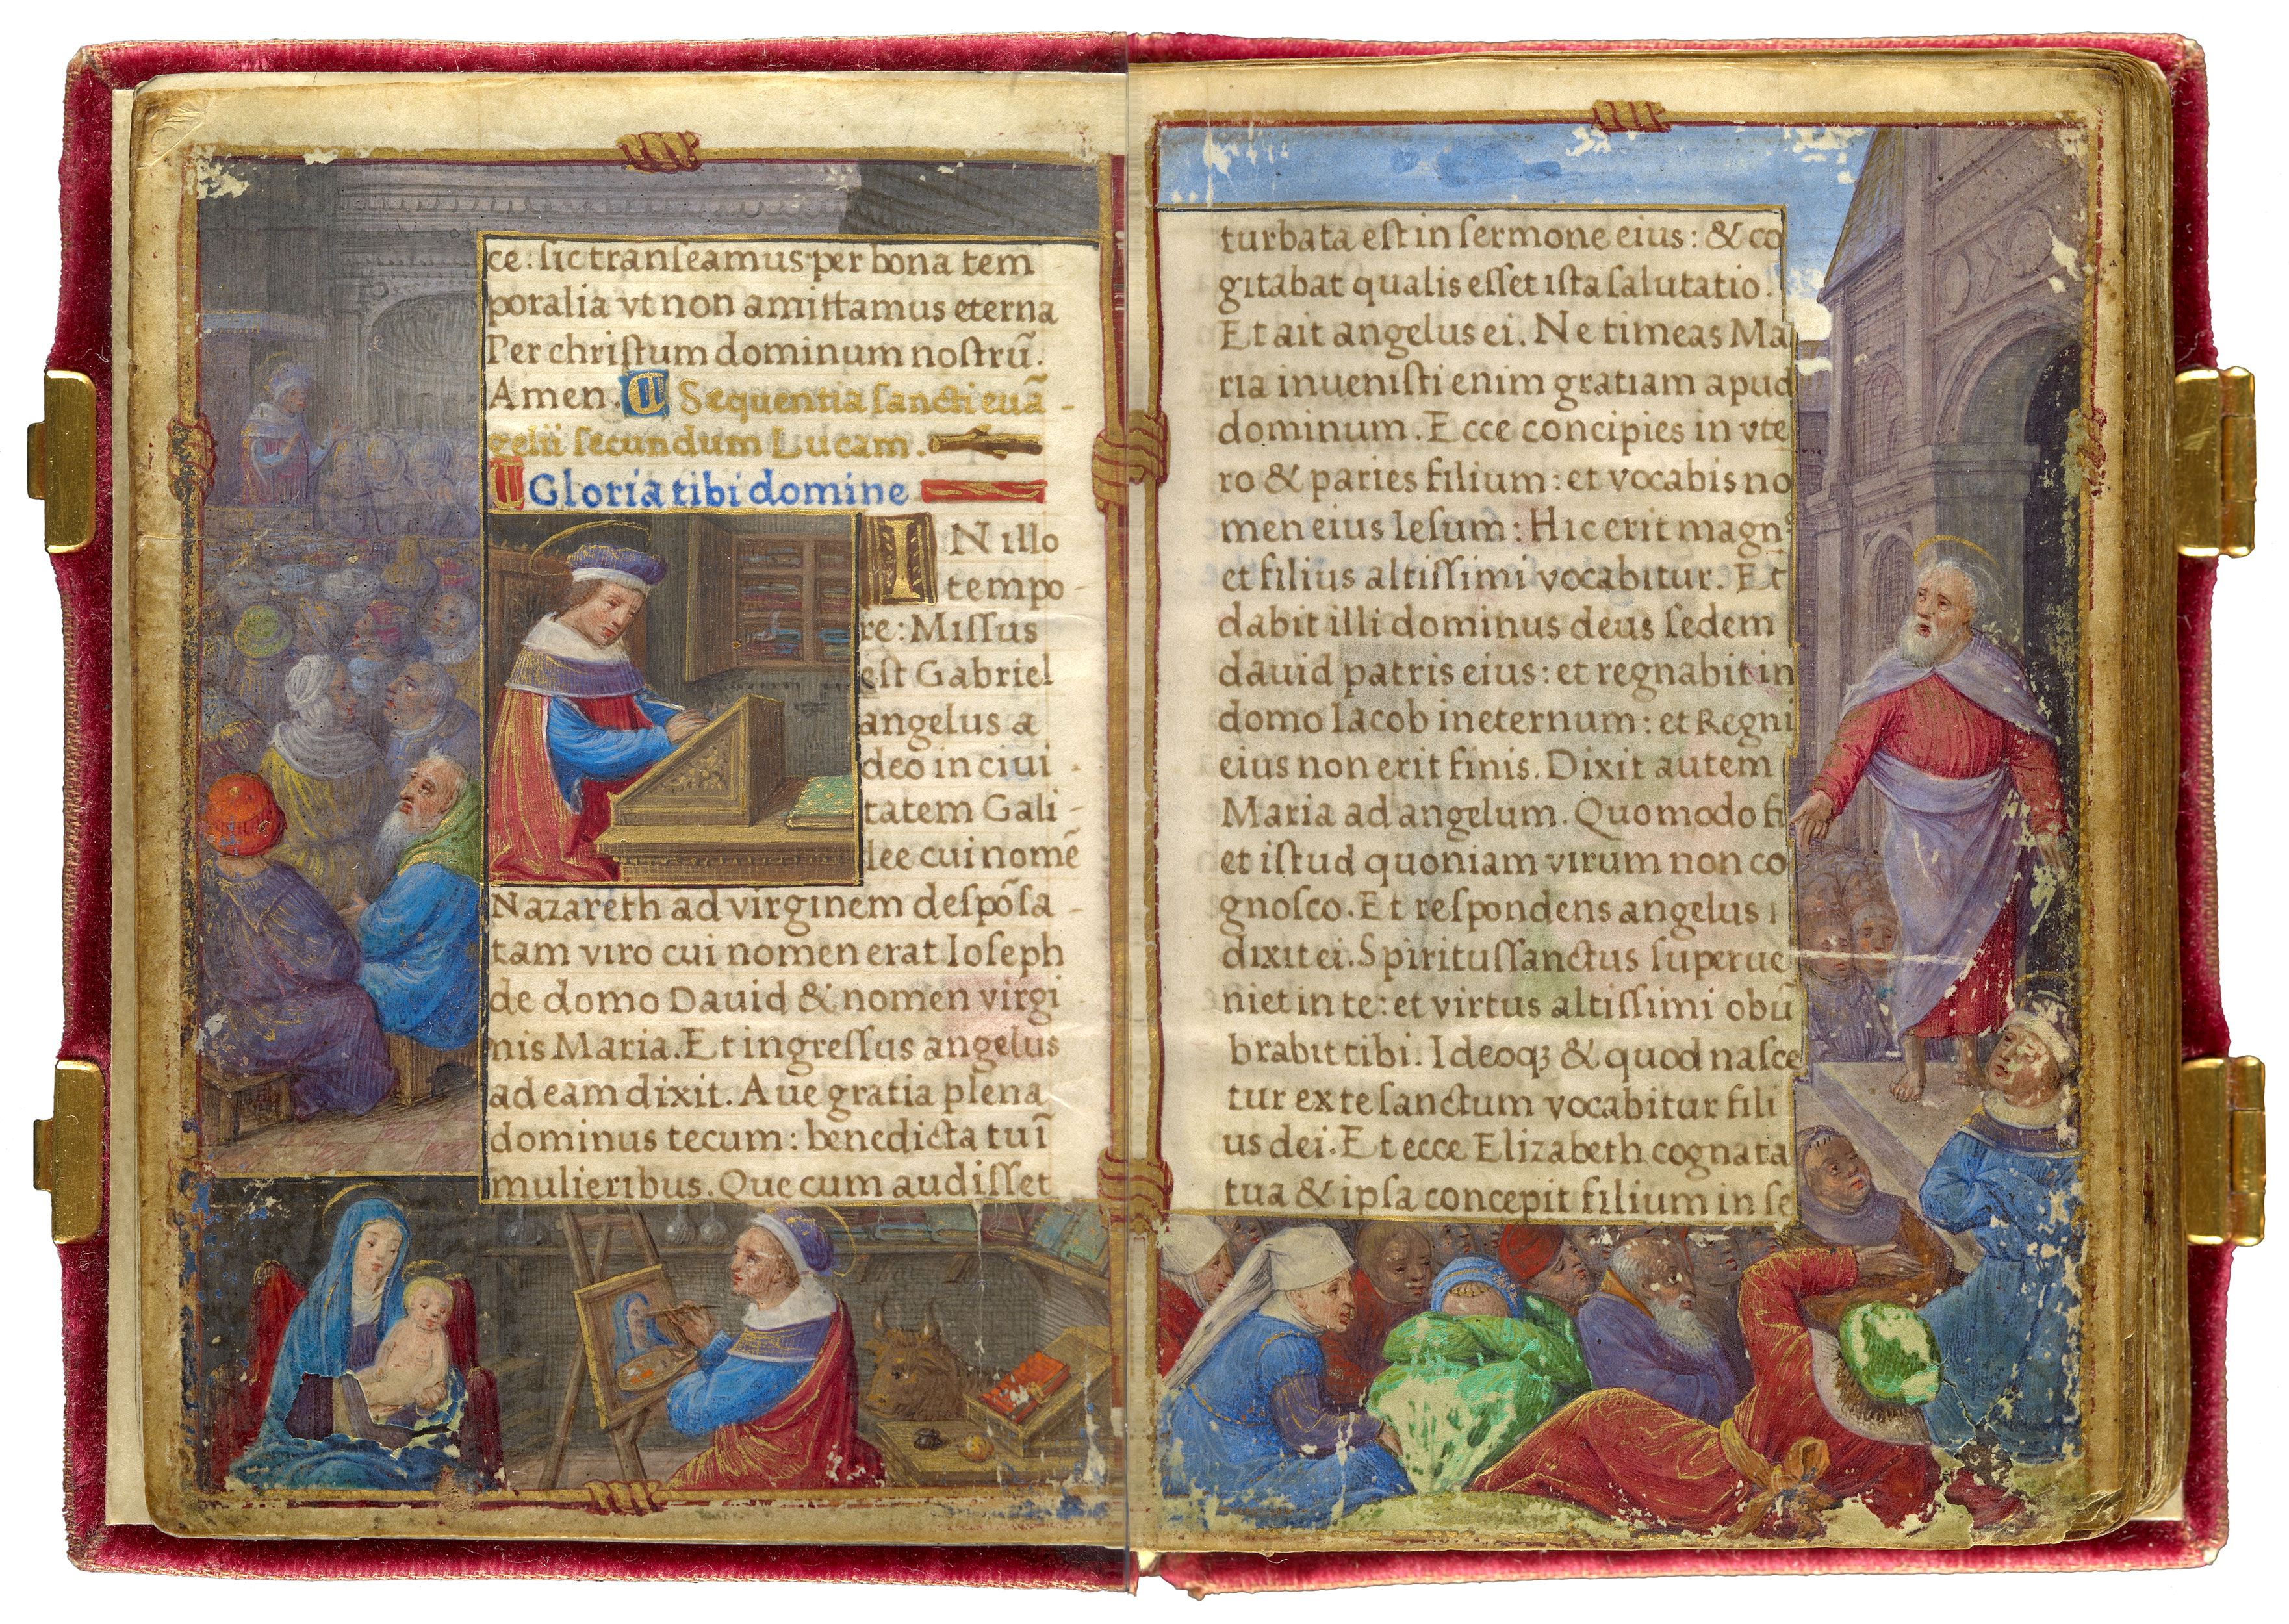 ce: sic tranſeamus per bona tem
poralia vt non amittamus eterna
Per chriſtum dominum noſtrū.
Amen. Sequentia ſancti euā-
gelii ſecundum Lucam.
Gloria tibi domine
IN illo
tempo-
re: Miſſus
eſt Gabriel
angelus a
deo in ciui-
tatem Gali-
lee cui nomē
Nazareth ad virginem deſpōſa-
tam viro cui nomen erat Ioſeph
de domo Dauid & nomen virgi
nis Maria. Et ingreſſus angelus
ad eam dixit. Aue gratia plena
dominus tecum: benedicta tu ī
mulieribus. Que cum audiſſet
turbata eſt in ſermone eius: & co
gitabat qualis eſſet iſta ſalutatio.
Et ait angelus ei. Ne timeas Ma
ria inueniſti enim gratiam apud
dominum. Ecce concipies in vte
ro & paries filium: et vocabis no
men eius Ieſum: Hic erit magnꝰ
et filius altiſſimi vocabitur. Et
dabit illi dominus deus ſedem
dauid patris eius: et regnabit in
domo Iacob in eternum: et Regni
eius non erit finis. Dixit autem
Maria ad angelum. Quomodo fi
et iſtud quoniam virum non co
gnoſco. Et reſpondens angelus
dixit ei. Spirituſſanctus ſuperue
niet in te: et virtus altiſſimi obū
brabit tibi. Ideoqꝫ & quod naſce
tur ex te ſanctum vocabitur fili
us dei. Et ecce Elizabeth cognata
tua & ipſa concepit filium in ſe